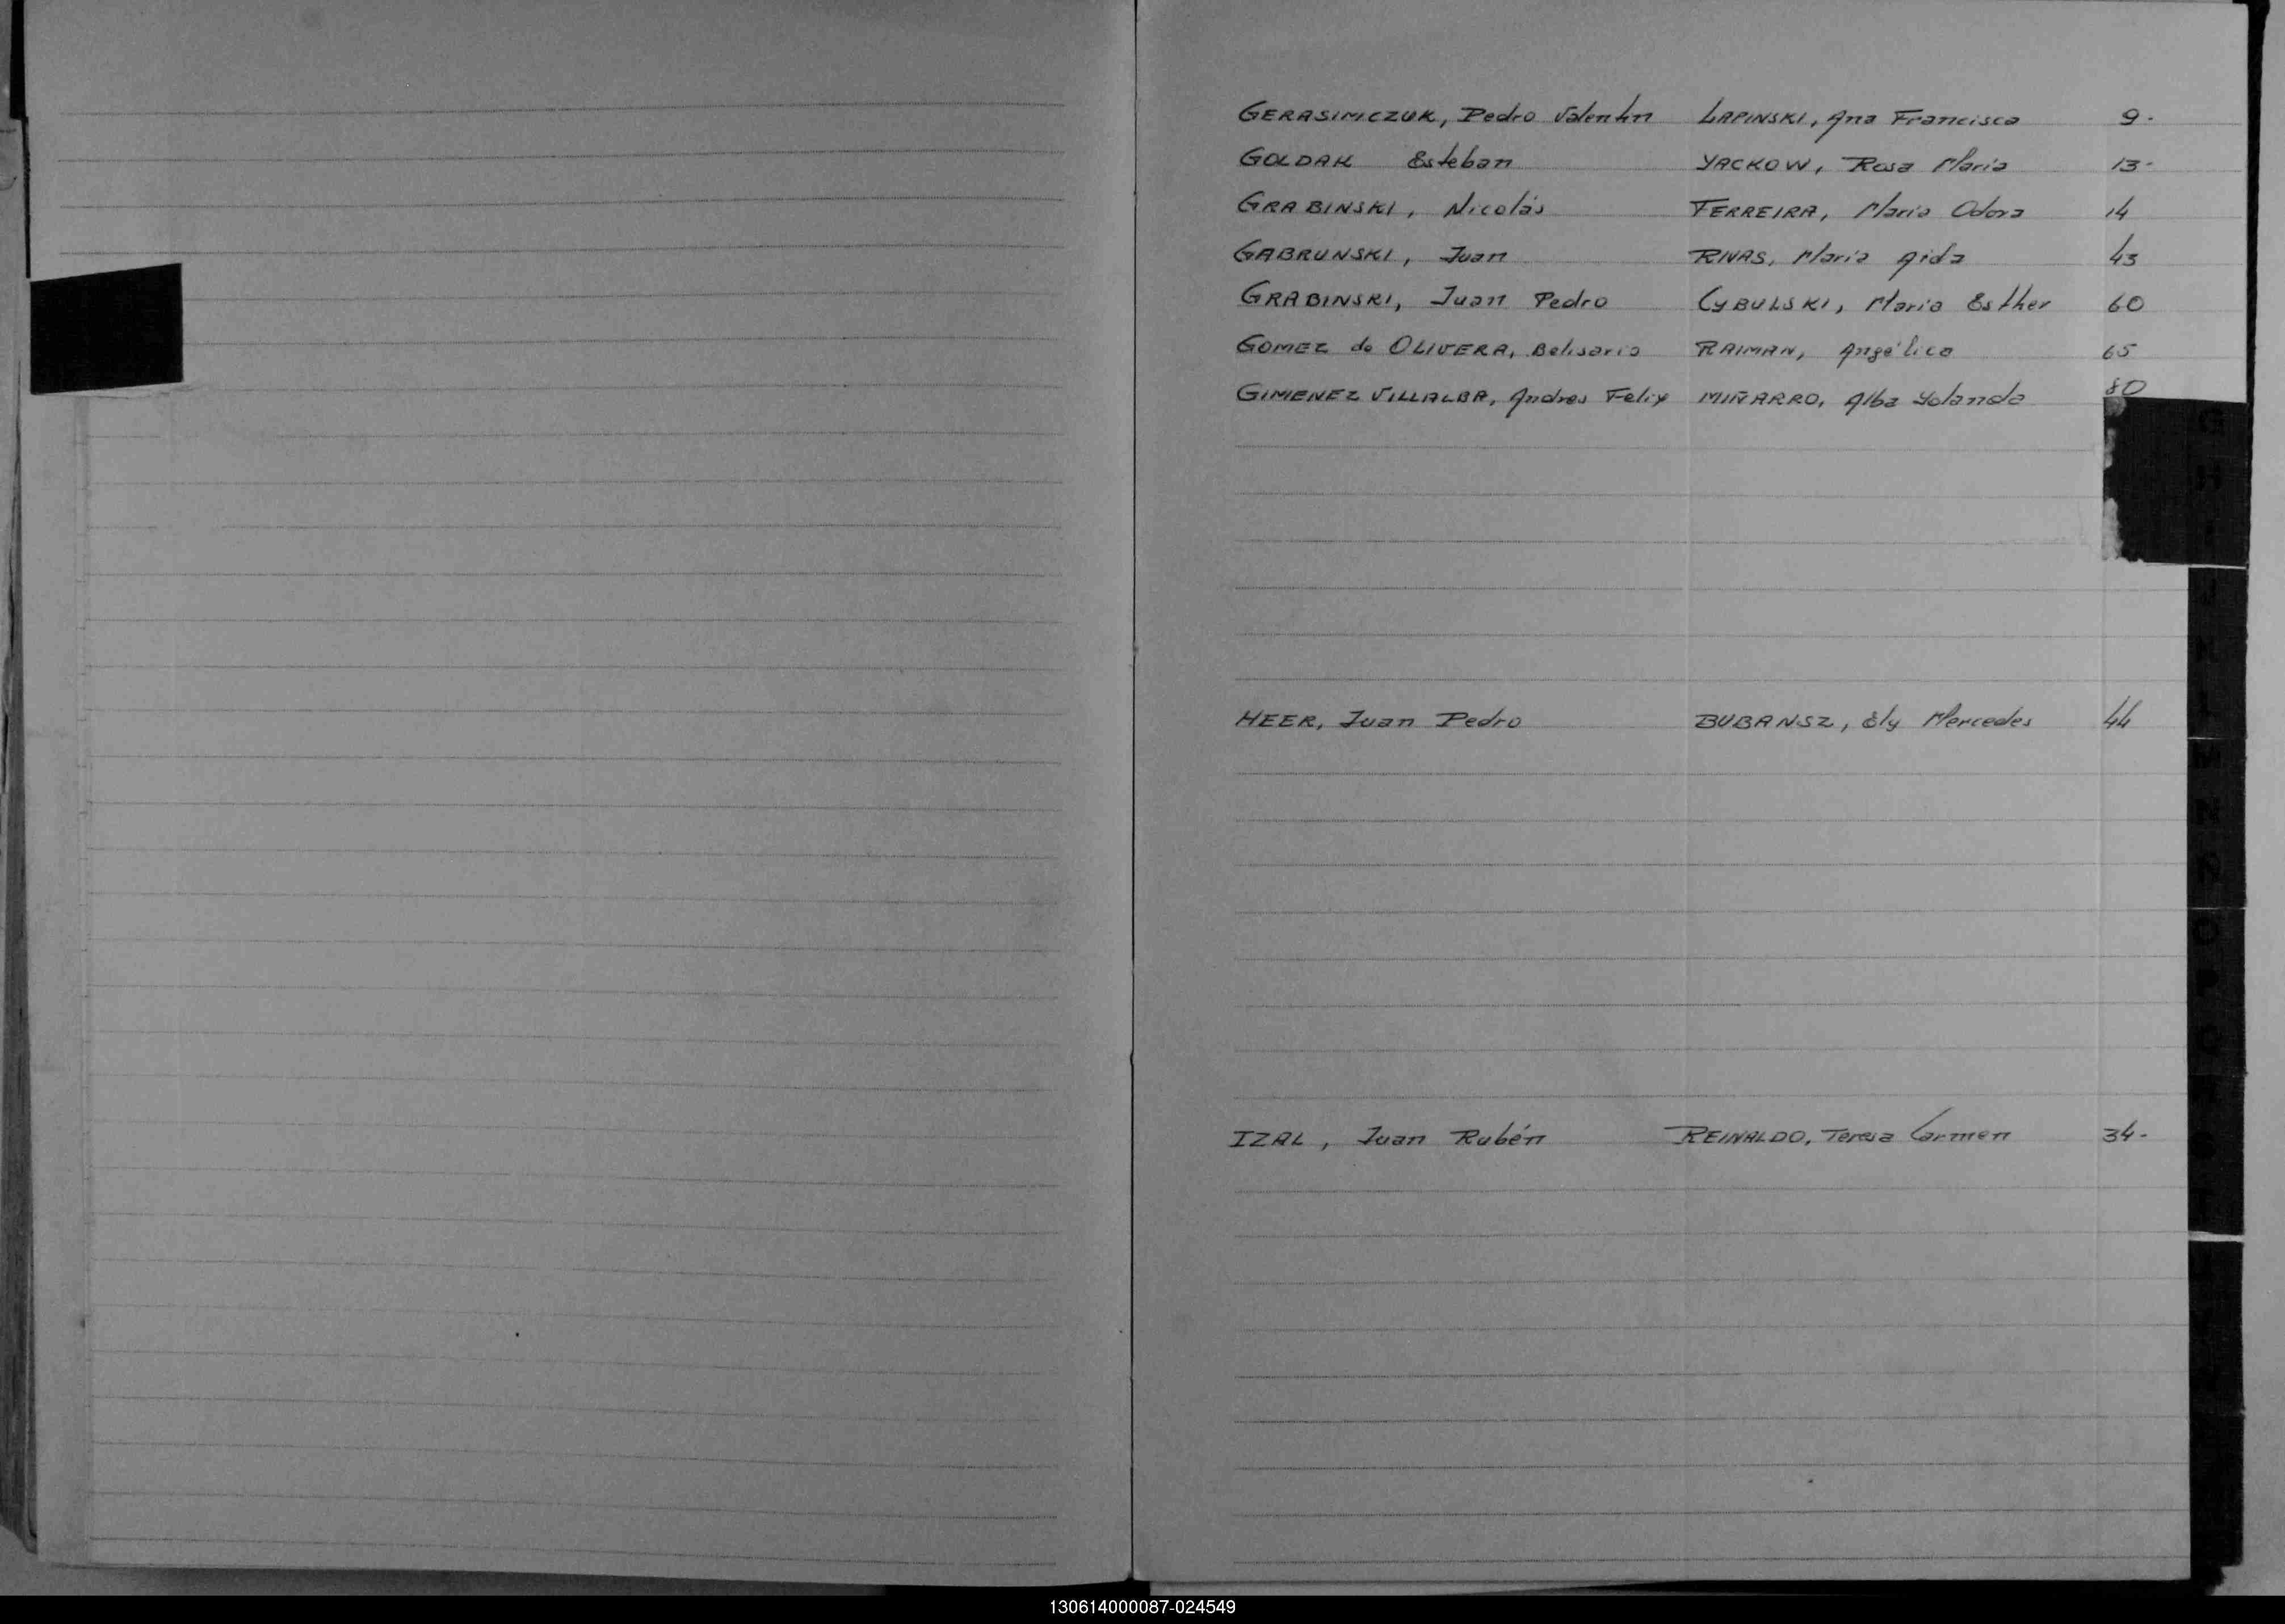 GERASIMCZUK, Pedro Valentin LAPINSKI, Ana Francisca 9-
GOLDAK Esteban YACKOW, Rosa Maria 13-
GRABINSKI, Nicolás FERREIRA, Maria Odora 14
GABRUNSKI, Juan RIVAS, Maria Aida 43
GRABINSKI, Juan Pedro CYBULSKI, Maria Esther 60
GOMEZ do OLIVERA, Belisario RAIMAN, Angélica 65
GIMENEZ VILLALBA, Andres Felix MIÑARRO, Alba Yolanda 80
HEER, Juan Pedro BUBANSZ, Ely Mercedes 44
IZAL, Juan Rubén REINALDO, Teresa Carmen 34-
130614000087-024549